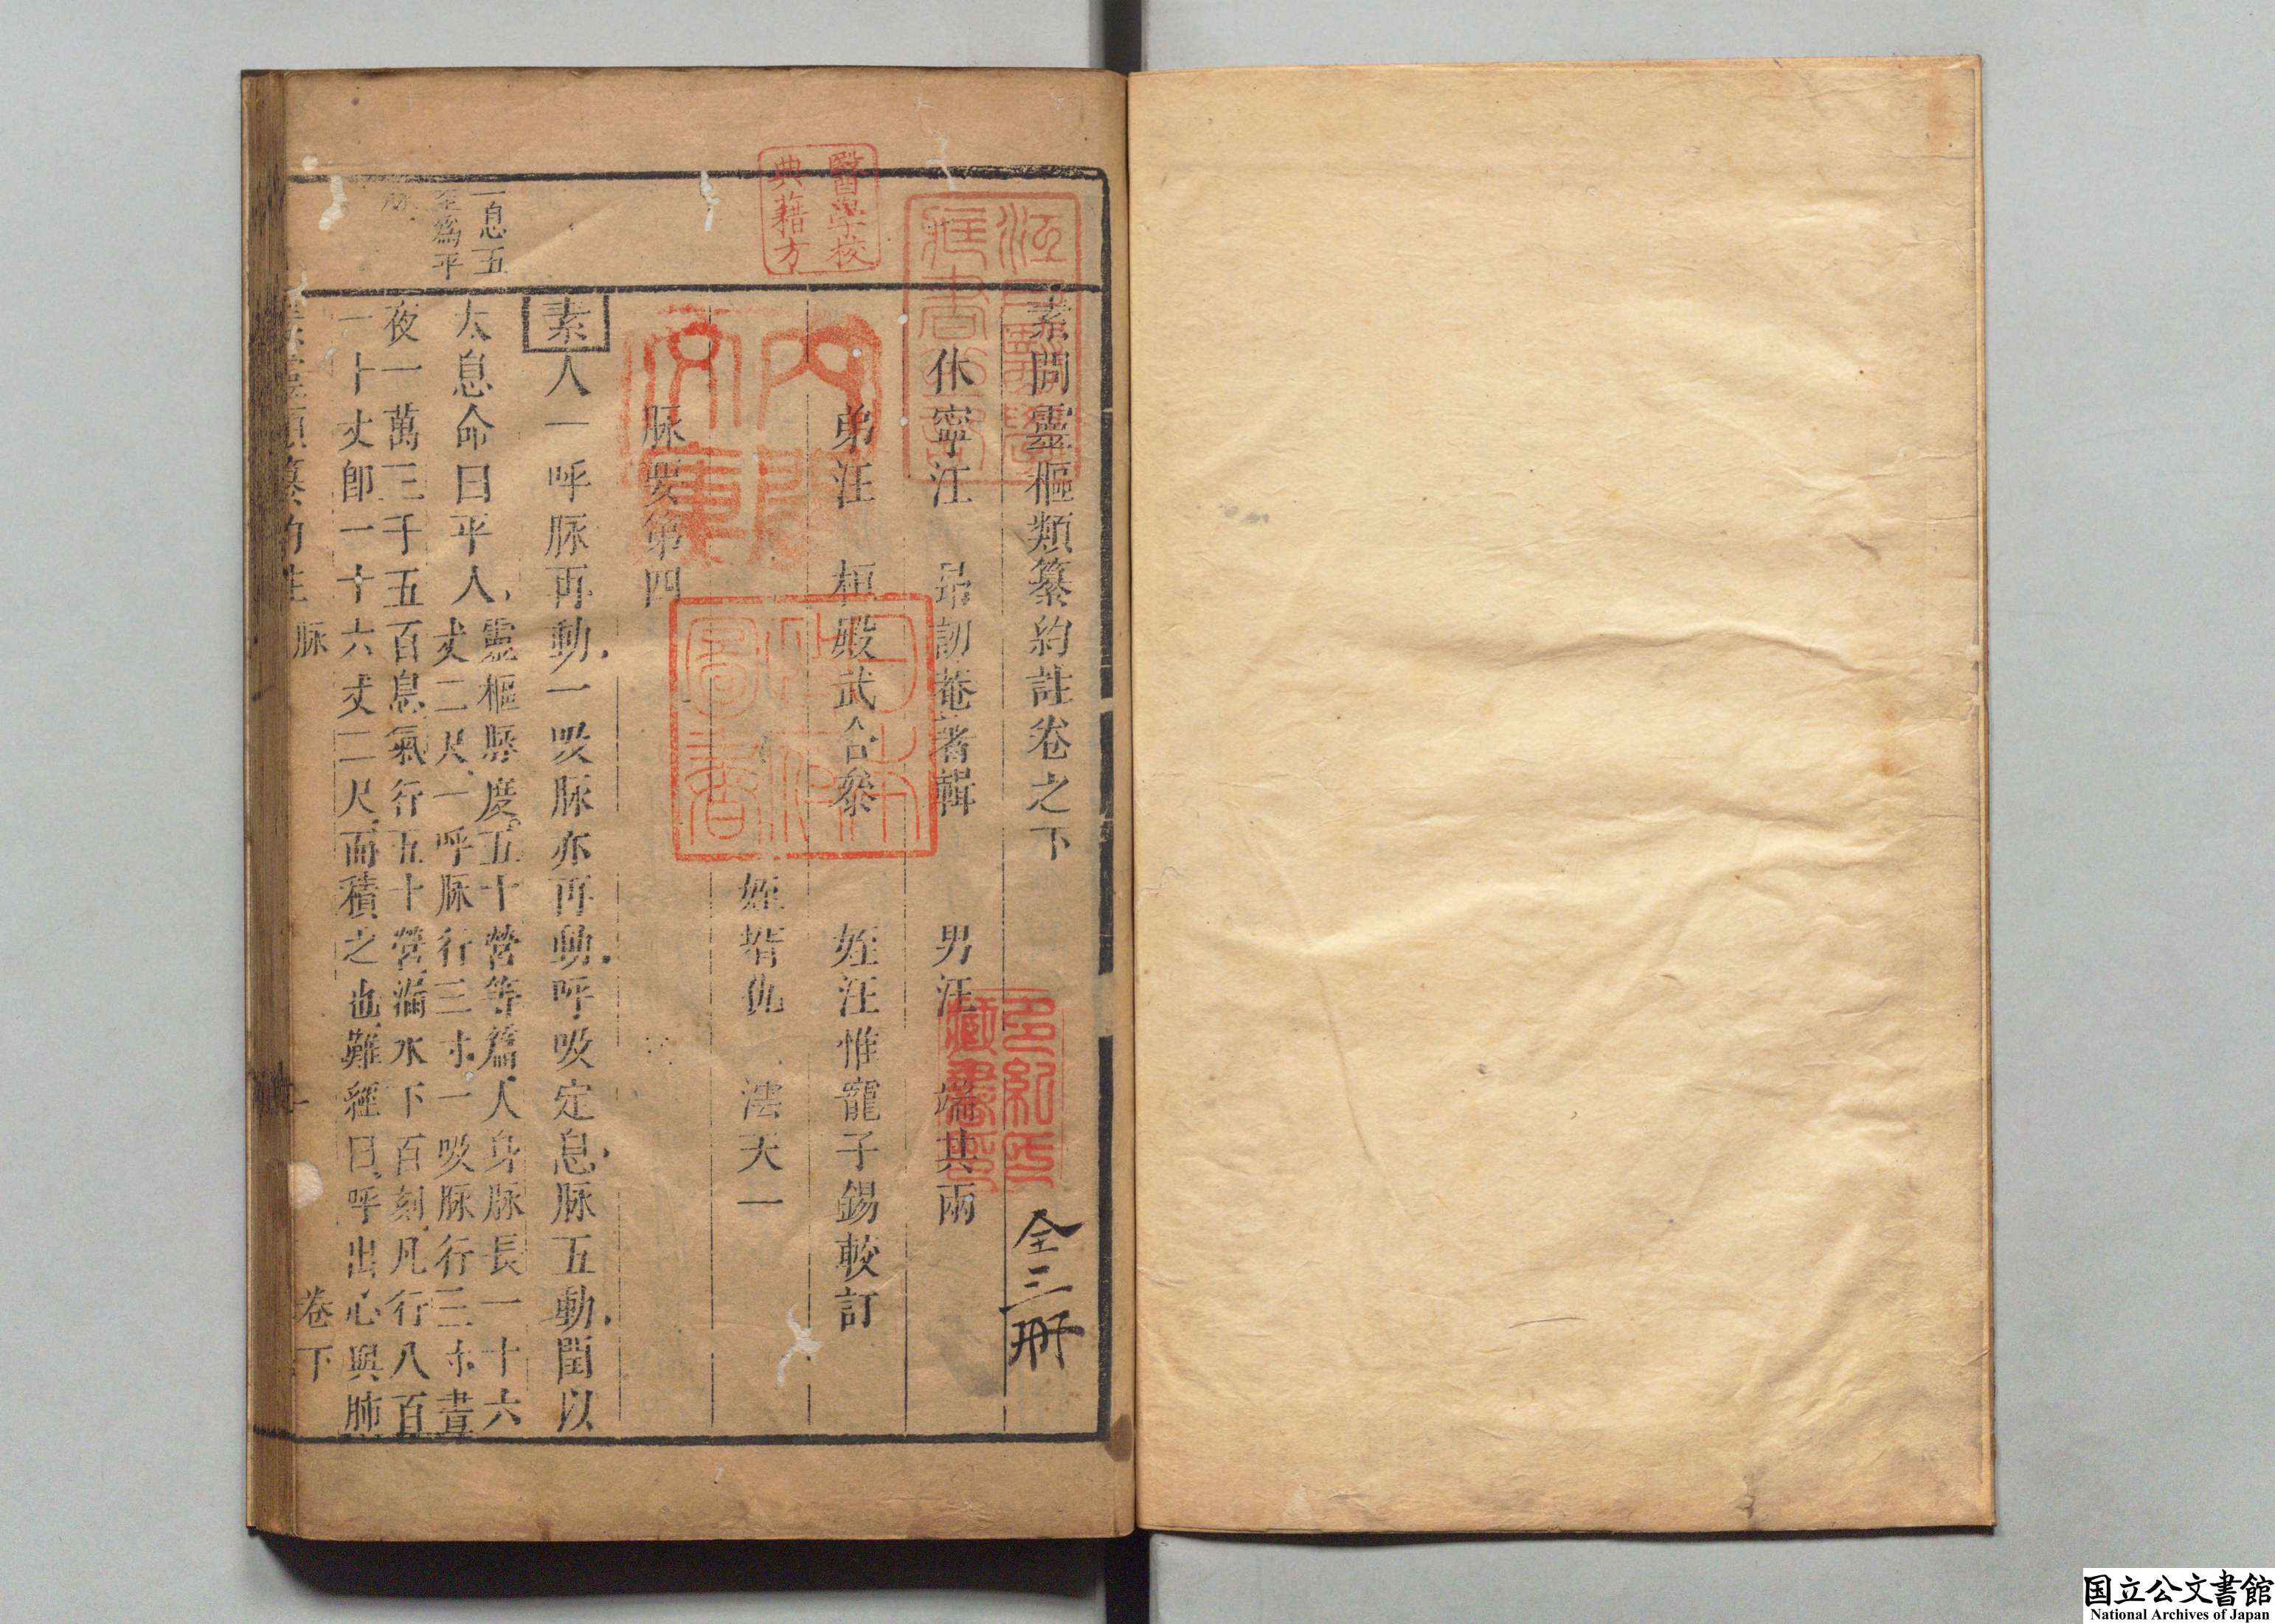 素問靈樞類纂約註卷之下
全三冊
休寧汪　昂訒菴著輯　男汪　端其兩
弟汪　桓殿武合參　姪汪惟寵子錫較訂
姪壻仇　澐天一
脉要第四
素人一呼脉再動.一吸脉亦再動.呼吸定息.脉五動.閏以
太息命曰平人.
靈樞脈度。五十營等篇.人身脉長一十六
丈二尺.一呼脉行三寸.一吸脉行三寸.晝
夜一萬三千五百息.氣行五十營.漏水下百刻.凡行八百
一十丈卽一十六丈二尺.而積之也.難經曰.呼出心與肺
一息五
至爲平
脉
脉
卷下
醫學校
典藉方
多紀氏
藏書印
国立公文書館
National Archives of Japan